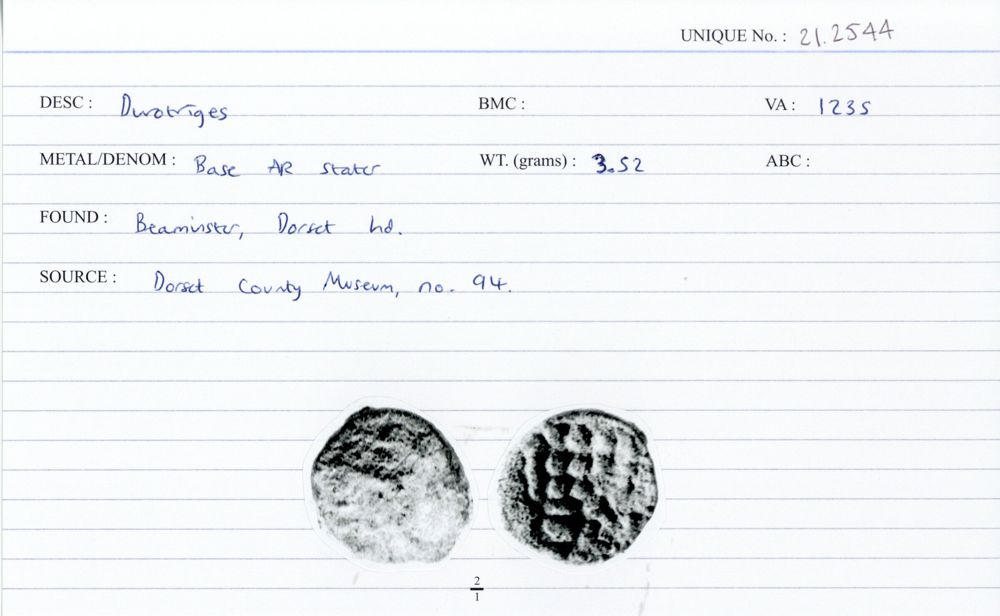 UNIQUE No. : 21.2544
DESC : Durotriges BMC : VA : 1235
METAL/DENOM : Base AR stater WT. (grams) : 3.52 ABC :
FOUND : Beaminster, Dorset hd.
SOURCE : Dorset County Museum, no. 94.
2
1